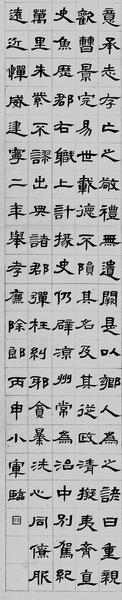 意承志存亡之敬禮無遺闕是以鄉人為之諺曰重親
歡曹景完易世載德不隕其名及其從政清擬夷齊直
史魚歷郡右職上計掾史仍辟涼州常為治中別駕紀
萬里朱紫不謬出典諸郡彈枉糾邪貪暴洗心同僚服
遠近憚威建寧二年舉孝廉除郎丙申小寒臨